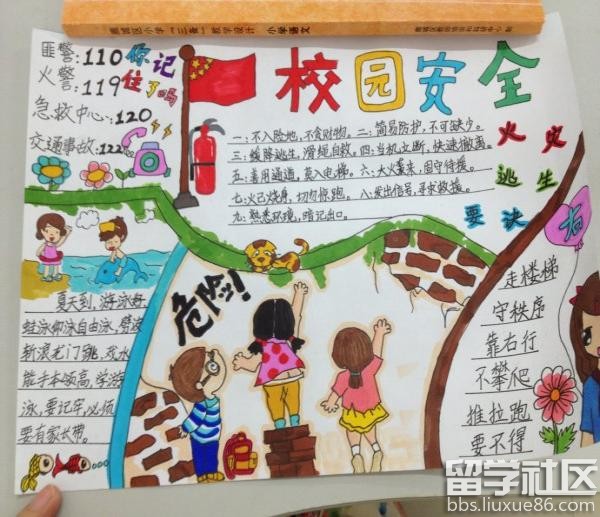 鹿城区小学“三备”教学设计 小学语文
匪警:110
火警:119
急救中心:120
交通事故:122
你记
住了吗
校园安全
一:不入险地,不贪财物。二:简易防护,不可缺少。
三:缓降逃生,滑绳自救。四:当机立断,快速撤离。
五:善用通道,莫入电梯。六:大火袭来,固守待援。
七:火已烧身,切勿惊跑。八:发出信号,寻求救援。
九:熟悉环境,暗记出口。
火灾
逃生
要诀
夏天到,游泳好,
蛙泳仰泳自由泳,
新浪龙门跳,戏水
能手本领高,学游
泳,要记牢,必须
要有家长带。
危险!
右
走楼梯
守秩序
靠右行
不攀爬
推拉跑
要不得
留学社区
bbs.liuxue86.com